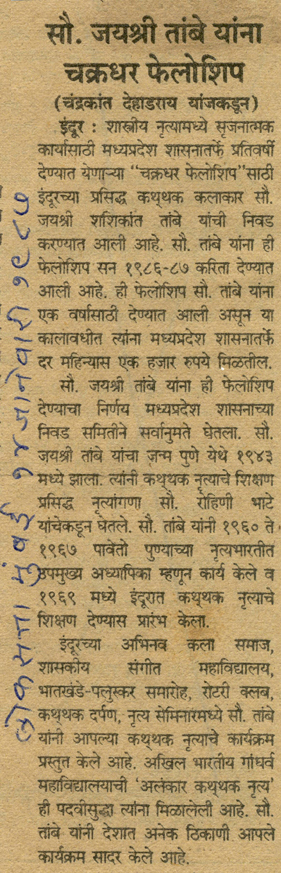 सौ. जयश्री तांबे यांना
चक्रधर फेलोशिप
(चंद्रकांत देहाडराय यांजकडून)
इंदूर : शास्त्रीय नृत्यामध्ये सृजनात्मक
कार्यासाठी मध्यप्रदेश शासनातर्फे प्रतिवर्षी
देण्यात येणाऱ्या "चक्रधर फेलोशिप"साठी
इंदूरच्या प्रसिद्ध कथ्थक कलाकार सौ.
जयश्री शशिकांत तांबे यांची निवड
करण्यात आली आहे. सौ. तांबे यांना ही
फेलोशिप सन १९८६-८७ करिता देण्यात
आली आहे. ही फेलोशिप सौ. तांबे यांना
एक वर्षासाठी देण्यात आली असून या
कालावधीत त्यांना मध्यप्रदेश शासनातर्फे
दर महिन्यास एक हजार रुपये मिळतील.
सौ. जयश्री तांबे यांना ही फेलोशिप
देण्याचा निर्णय मध्यप्रदेश शासनाच्या
निवड समितीने सर्वानुमते घेतला. सौ.
जयश्री तांबे यांचा जन्म पुणे येथे १९४३
मध्ये झाला. त्यांनी कथ्थक नृत्याचे शिक्षण
प्रसिद्ध नृत्यांगणा सौ. रोहिणी भाटे
यांचेकडून घेतले. सौ. तांबे यांनी १९६० ते
१९६७ पावेतो पुण्याच्या नृत्यभारतीत
उपमुख्य अध्यापिका म्हणून कार्य केले व
१९६९ मध्ये इंदूरात कथ्थक नृत्याचे
शिक्षण देण्यास प्रारंभ केला.
इंदूरच्या अभिनव कला समाज,
शासकीय संगीत महाविद्यालय,
भातखंडे-पलुस्कर समारोह, रोटरी क्लब,
कथ्थक दर्पण, नृत्य सेमिनारमध्ये सौ. तांबे
यांनी आपल्या कथ्थक नृत्याचे कार्यक्रम
प्रस्तुत केले आहे. अखिल भारतीय गांधर्व
महाविद्यालयाची 'अलंकार कथ्थक नृत्य'
ही पदवीसुद्धा त्यांना मिळालेली आहे. सौ.
तांबे यांनी देशात अनेक ठिकाणी आपले
कार्यक्रम सादर केले आहे.
लोकसत्ता मुंबई १४ जानेवारी १९८७